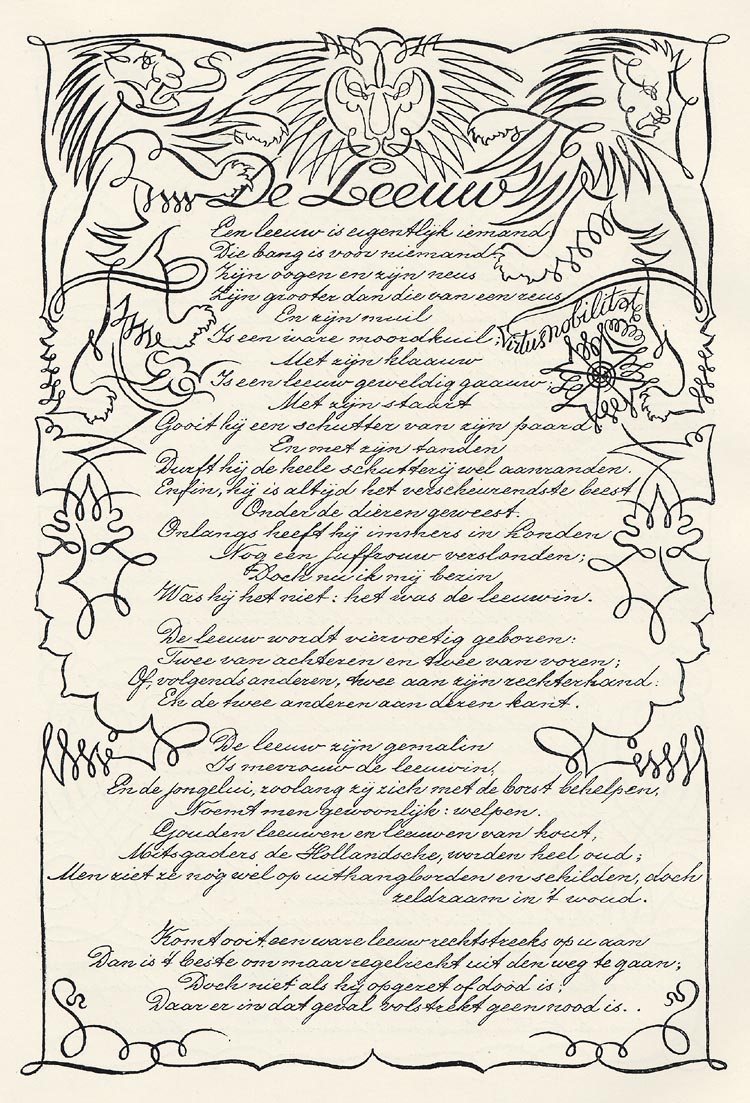 De Leeuw
Een leeuw is eigentlijk iemand
Die bang is voor niemand
Zijn oogen en zijn neus
Zijn grooter dan die van een reus
En zijn muil
Is een ware moordkuil;
virtus nobilitat
Met zijn klaauw
Is een leeuw geweldig gaauw;
Met zijn staart
Gooit hij een schutter van zijn paard
En met zijn tanden
Durft hij de heele schutterij wel aanranden.
Enfin, hij is altijd het verscheurendste beest
Onder de dieren geweest.
Onlangs heeft hij immers in Londen
Nog een juffrouw verslonden;
Doch nu ik mij bezin,
Was hij het niet: het was de leeuwin.
De leeuw wordt viervoetig geboren:
Twee van achteren en twee van voren;
Of, volgends anderen, twee aan zijn rechterhand:
En de twee anderen aan deren kant.
De leeuw zijn gemalin
Is mevrouw de leeuwin,
En de jongelui, zoolang zij zich met de borst behelpen,
Noemt men gewoonlijk: welpen.
Gouden leeuwen en leeuwen van hout,
Mitsgaders de Hollandsche, worden heel oud;
Men ziet ze nog wel op uithangborden en schilden, doch
zeldzaam in 't woud.
Komt ooit een ware leeuw rechtstreeks op u aan
Dan is 't beste om maar regelrecht uit den weg te gaan;
Doch niet als hij opgezet of dood is;
Daar er in dat geval volstrekt geen nood is..